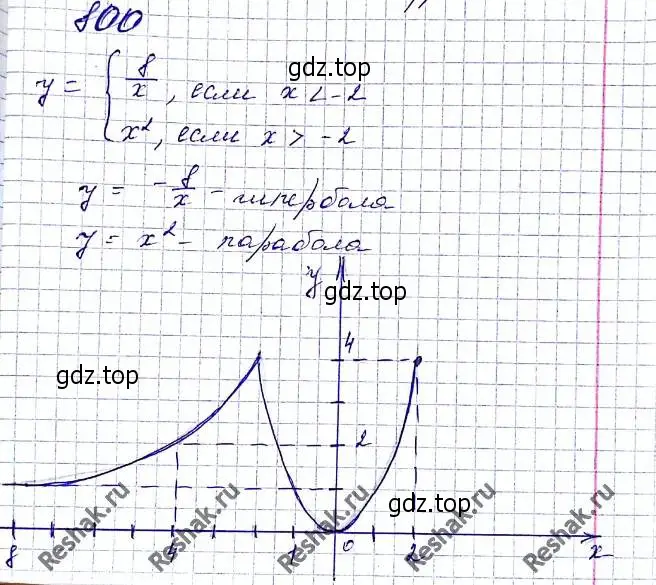 800
y = { 8/x, если x < -2
x², если x > -2
y = -8/x - гипербола
y = x² - парабола
y
4
2
8 4 1 0 2 x
gdz.top
gdz.top
gdz.top
gdz.top
Reshak.ru
Reshak.ru
Reshak.ru
Reshak.ru